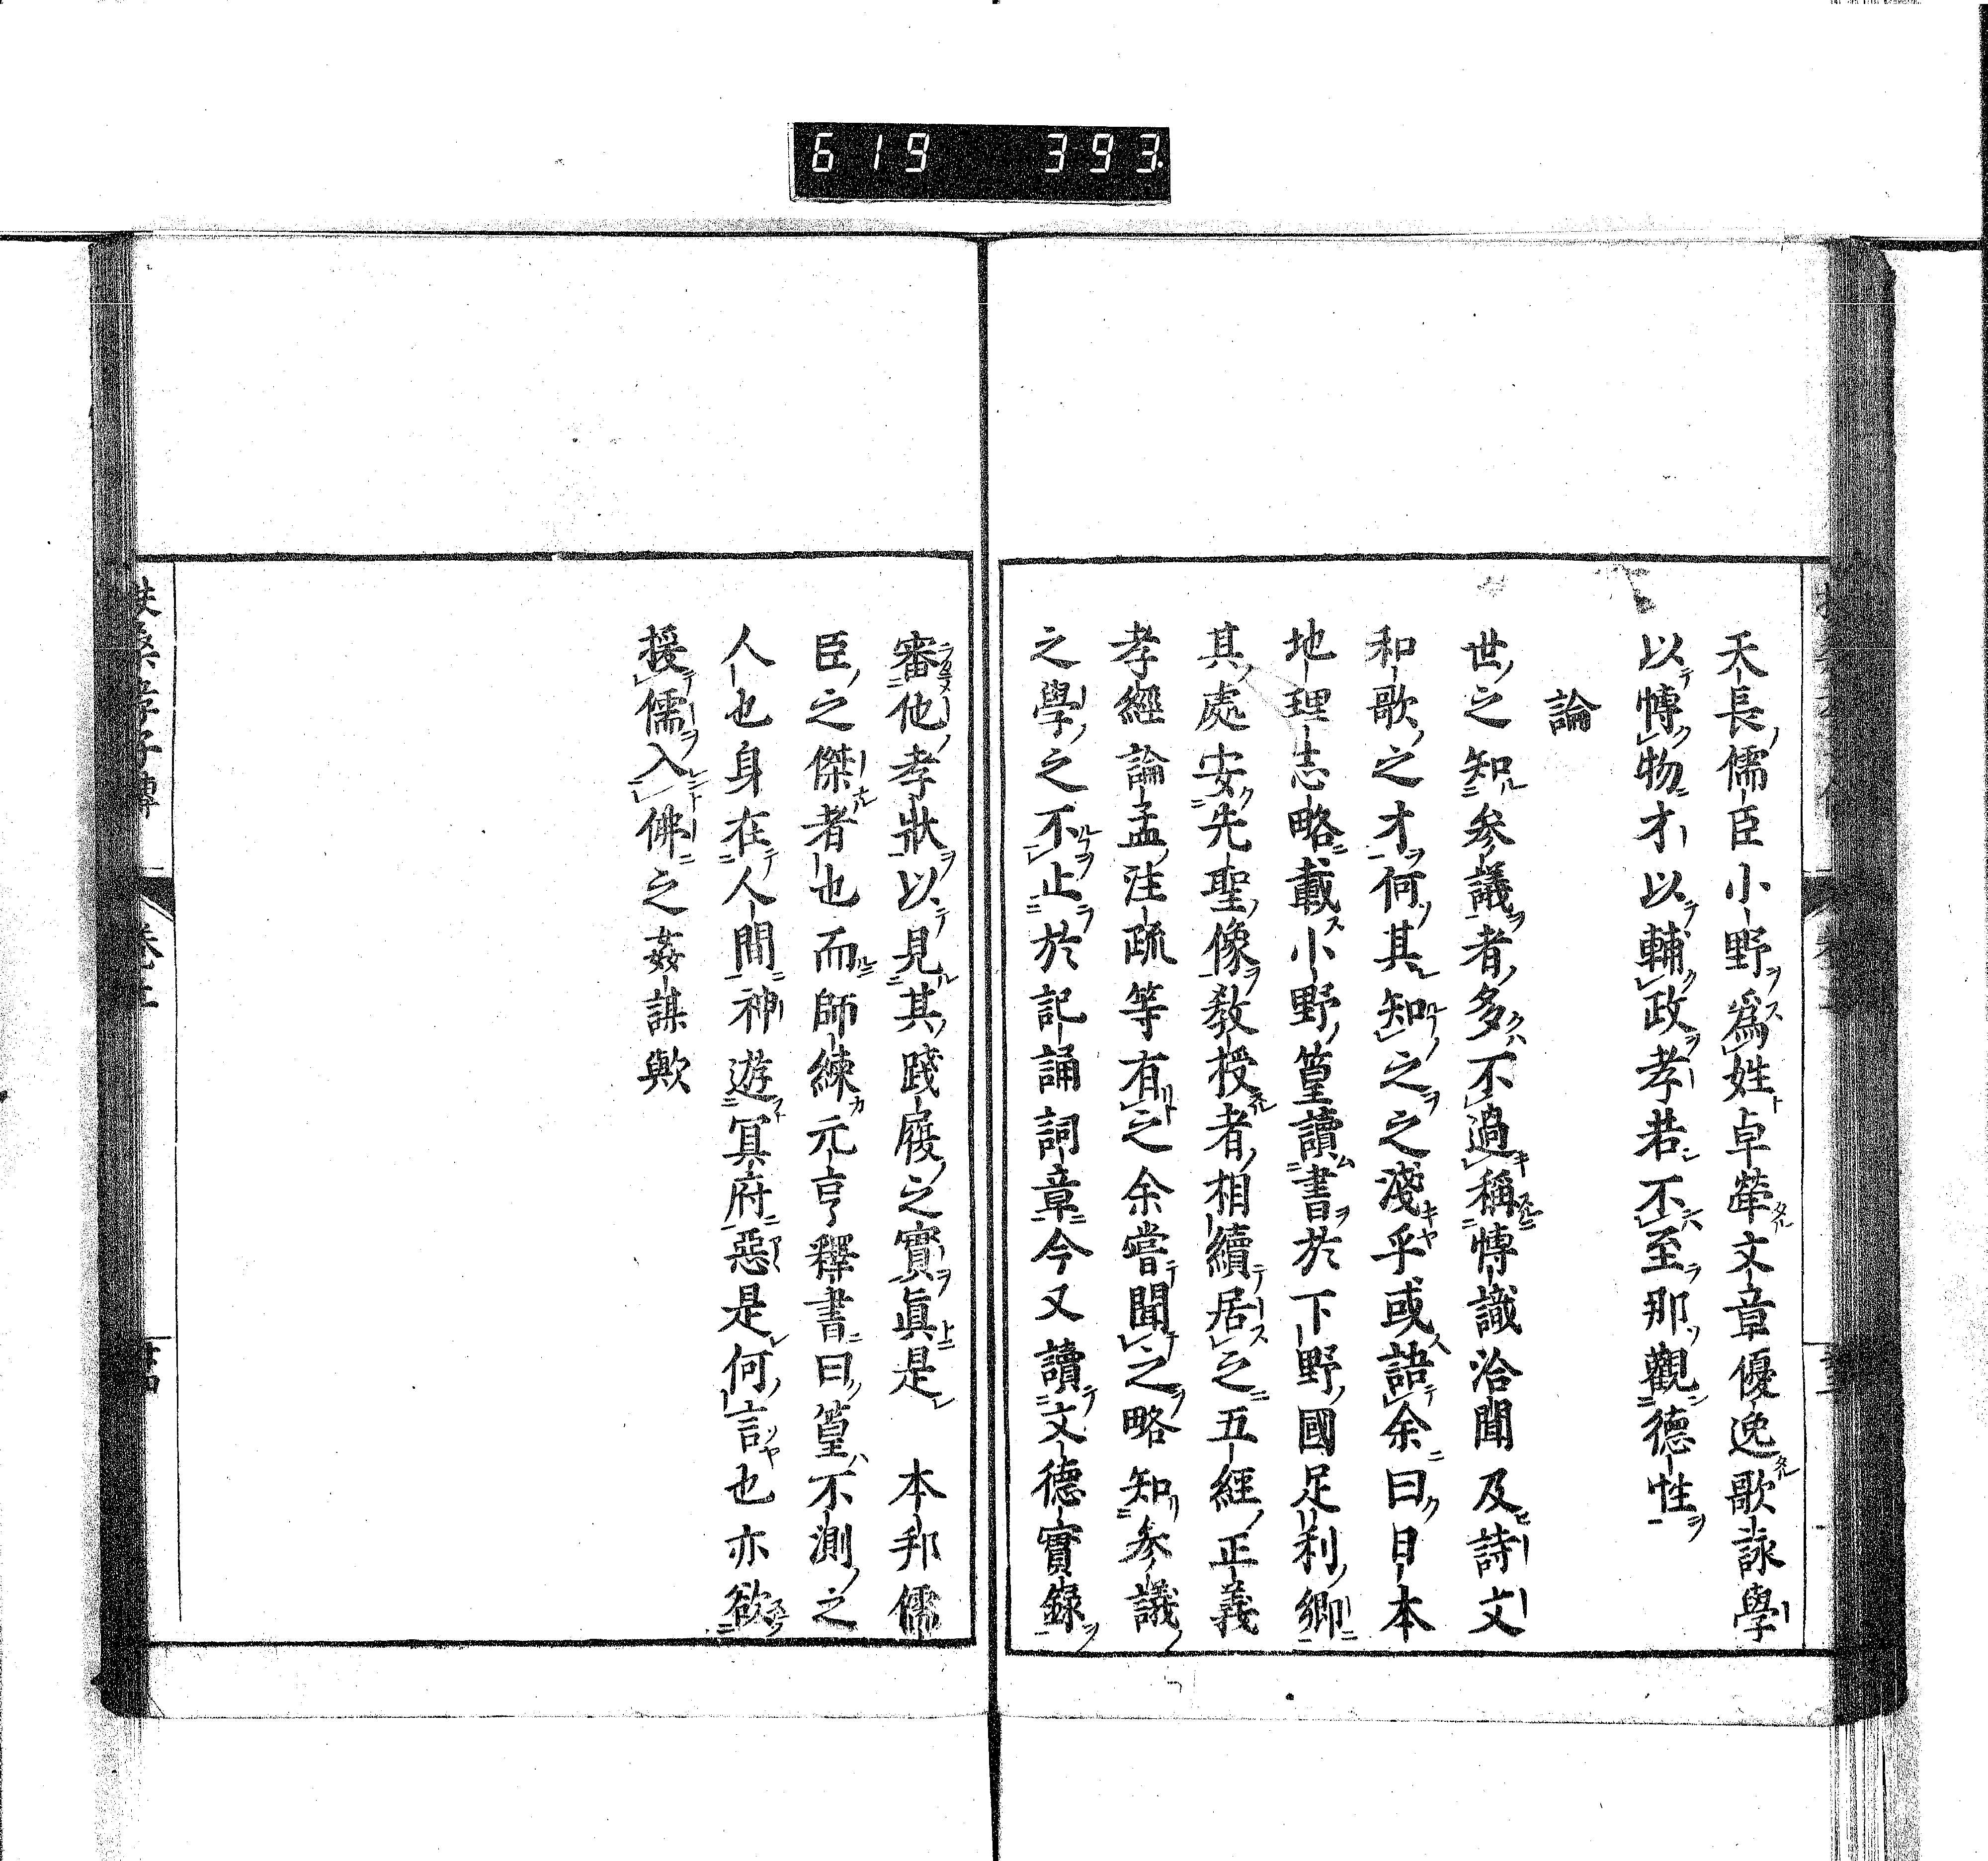 619 393
天長儒臣小野爲姓卓犖文章優逸歌詠學
以博物才以輔政孝若不至那觀德性
論
世之知參議者多不過稱博識洽聞及詩文
和歌之才何其知之之淺乎或語余曰日本
地理志略載小野篁讀書於下野國足利鄉
其處安先聖像敎授者相續居之五經正義
孝經論孟注疏等有之余嘗聞之略知參議
之學之不止於記誦詞章今又讀文德實錄
審他孝狀以見其踐履之實眞是 本邦儒
臣之傑者也而師練元亨釋書曰篁不測之
人也身在人間神遊冥府惡是何言也亦欲
援儒入佛之姦謀歟
扶桑孝子傳